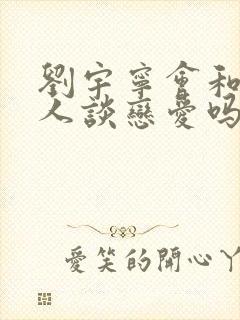 劉宇寧會和
人談戀愛嗎
愛笑的開心丫